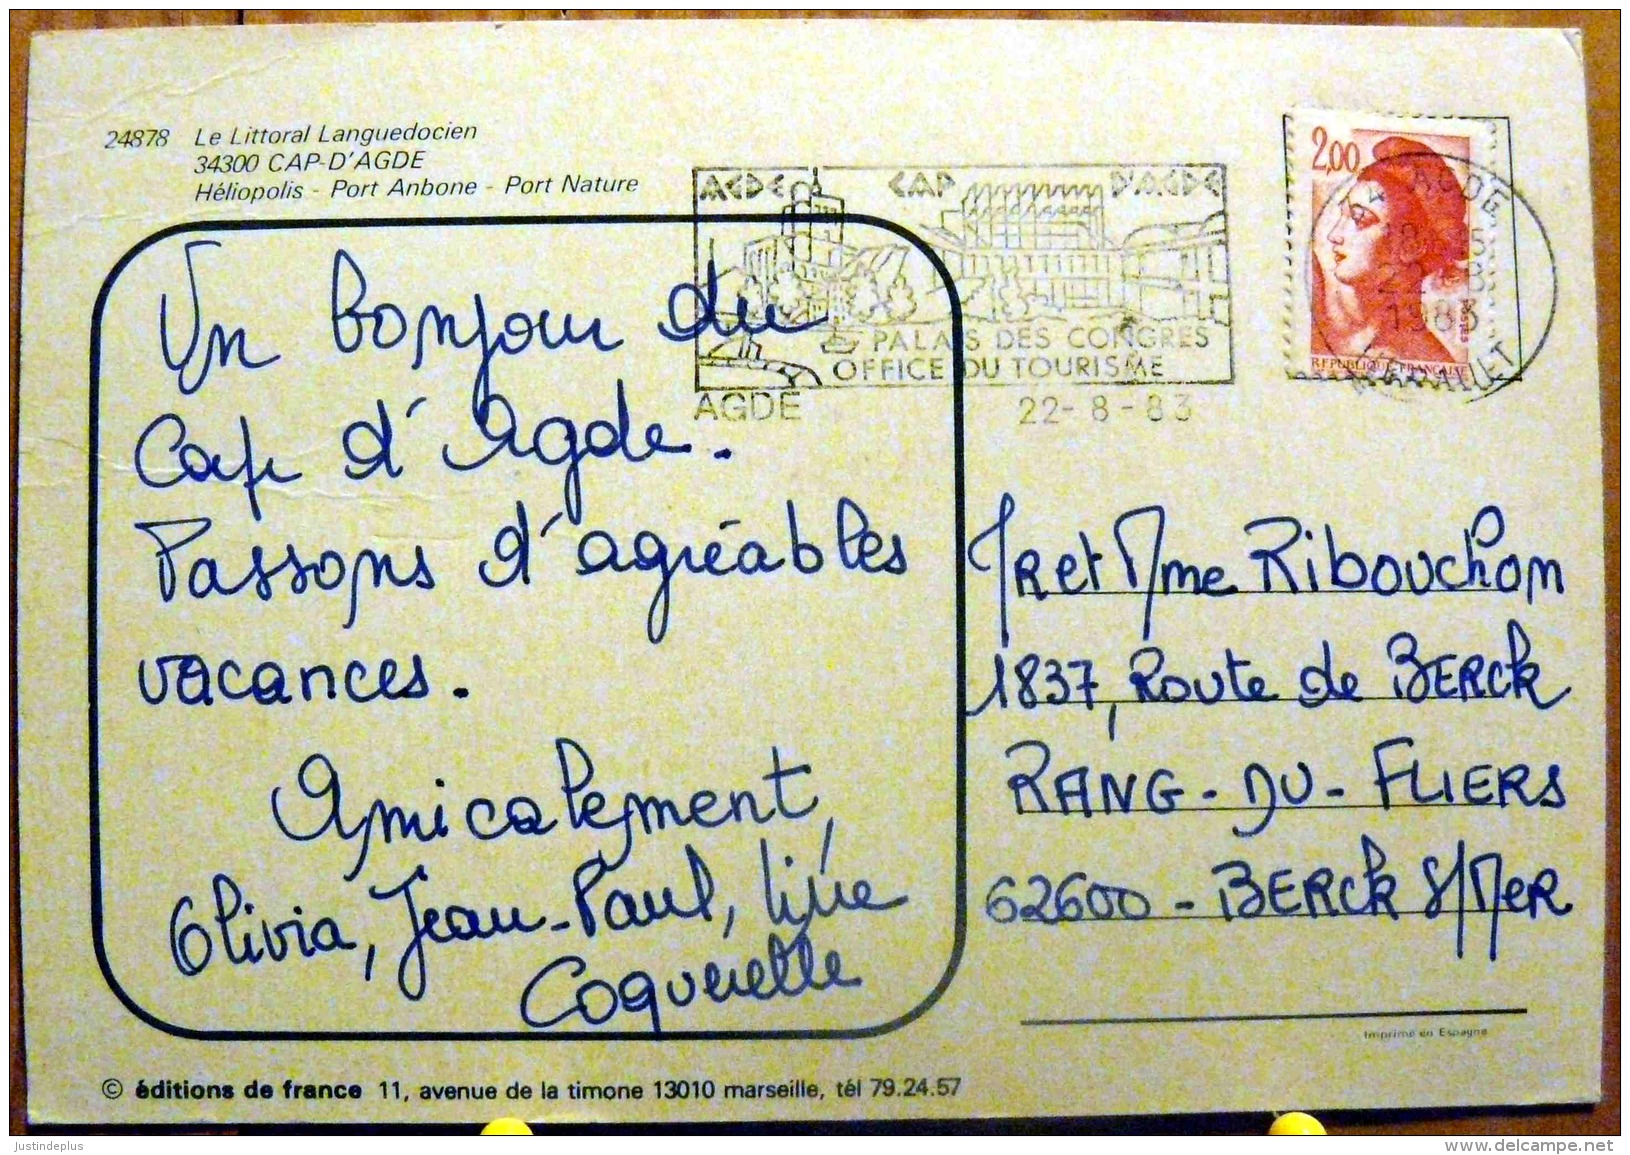 24878 Le Littoral Languedocien
34300 CAP-D'AGDE
Héliopolis - Port Anbone - Port Nature
AGDE CAP D'AGDE
PALAIS DES CONGRES
OFFICE DU TOURISME
AGDE 22-8-83
2,00
REPUBLIQUE FRANÇAISE
34 AGDE
22 8
1983
HERAULT
Un bonjour du
Cap d'Agde.
Passons d'agréables
vacances.
Amicalement,
Olivia, Jean-Paul, Line
Coquerelle
Mr et Mme Ribouchon
1837, Route de BERCK
RANG-DU-FLIERS
62600 - BERCK S/MER
Imprimé en Espagne
© éditions de france 11, avenue de la timone 13010 marseille, tél 79.24.57
justindeplus
www.delcampe.net